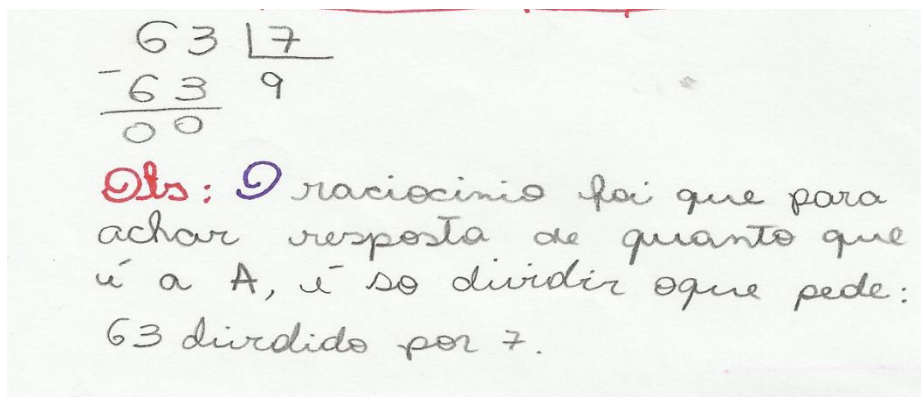 63 7
-63 9
00
Obs: O raciocinio foi que para
achar resposta de quanto que
é a A, é so dividir oque pede:
63 divdido por 7.